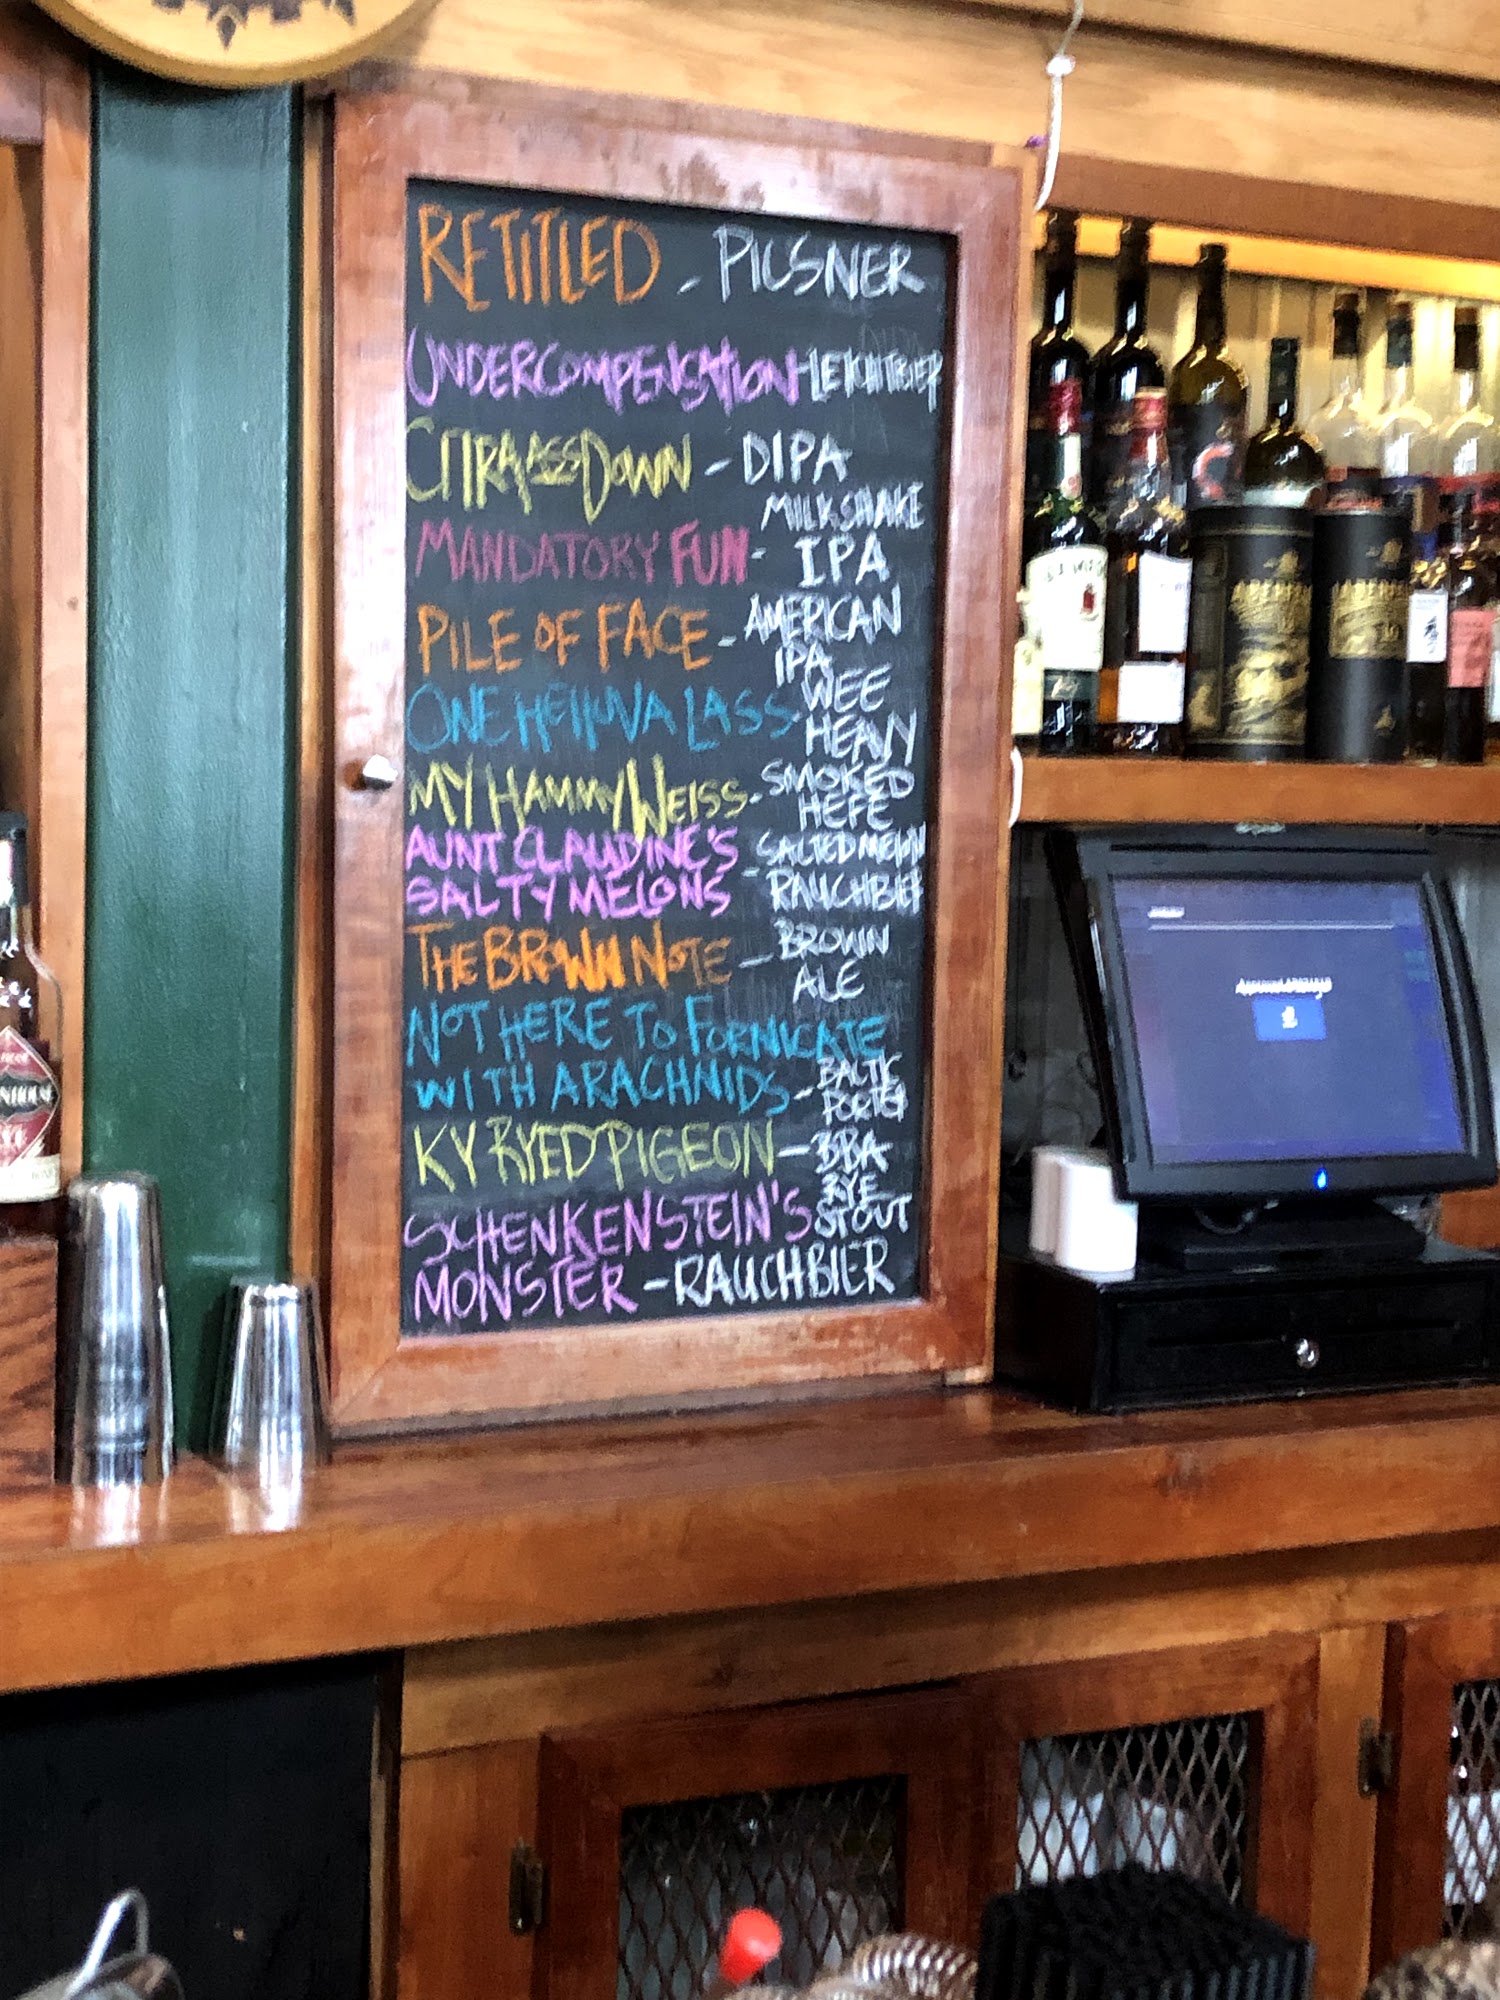 RETITLED - PILSNER
UNDERCOMPENSATION - LEICHTBIER
CITRA ASS DOWN - DIPA
MANDATORY FUN - MILKSHAKE
IPA
PILE OF FACE - AMERICAN
IPA
ONE HELLUVA LASS - WEE
HEAVY
MY HAMMY WEISS - SMOKED
HEFE
AUNT CLAUDINE'S
SALTY MELONS - SALTED MELON
RAUCHBIER
THE BROWN NOTE - BROWN
ALE
NOT HERE TO FORNICATE
WITH ARACHNIDS - BALTIC
PORTER
KY RYED PIGEON - BBA
RYE
STOUT
SCHENKENSTEIN'S
MONSTER - RAUCHBIER